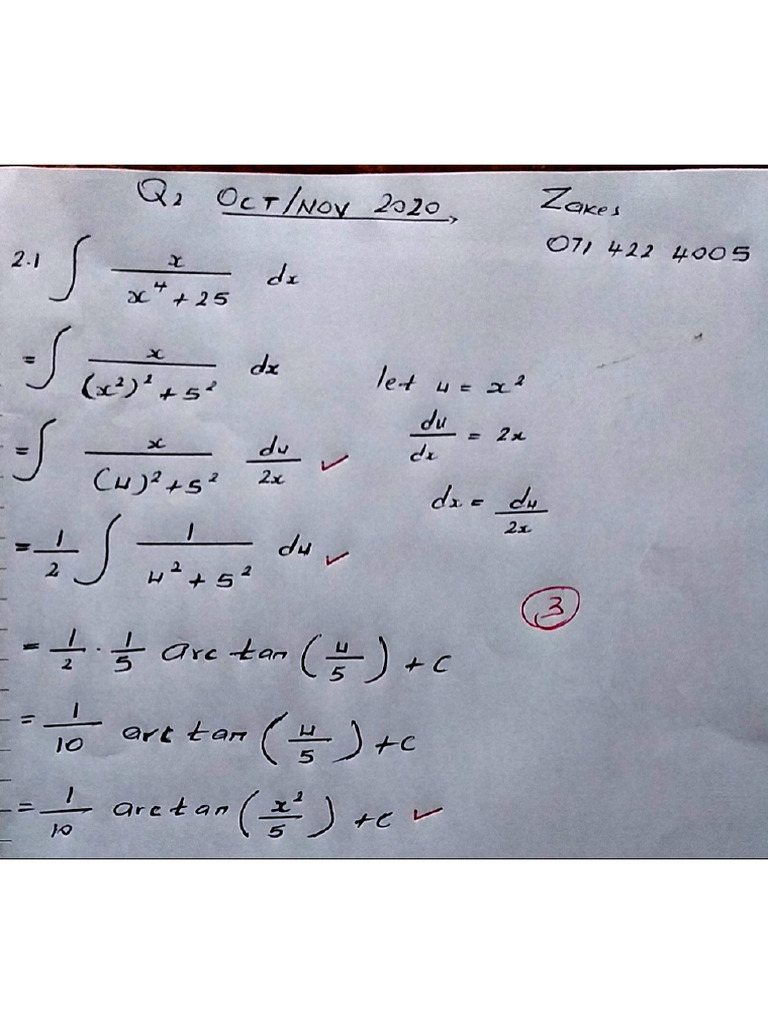 Q2 OCT/NOV 2020, Zakes
071 422 4005
2.1 ∫ x/(x⁴ + 25) dx
= ∫ x/((x²)² + 5²) dx let u = x²
du/dx = 2x
= ∫ x/((u)² + 5²) du/2x ✓
dx = du/2x
= 1/2 ∫ 1/(u² + 5²) du ✓
3
= 1/2 · 1/5 arctan(u/5) + C
= 1/10 arctan(u/5) + C
= 1/10 arctan(x²/5) + C ✓